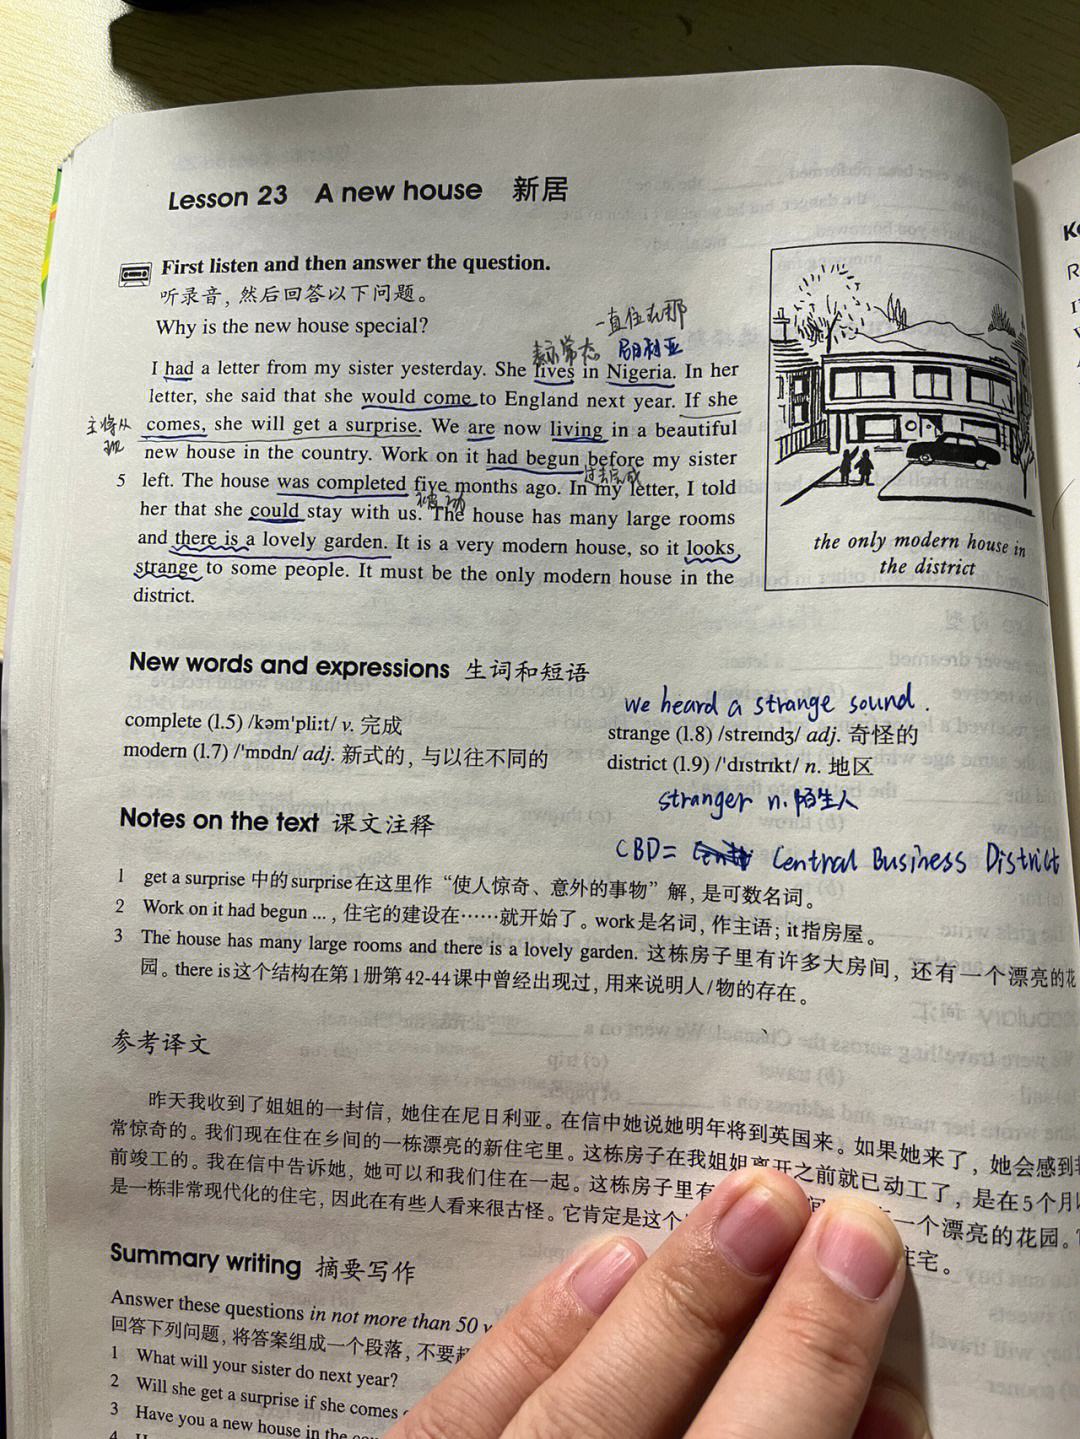 Lesson 23 A new house 新居
First listen and then answer the question.
听录音，然后回答以下问题。
Why is the new house special?
一直住在那
表示常态 尼日利亚
I had a letter from my sister yesterday. She lives in Nigeria. In her
letter, she said that she would come to England next year. If she
主将从
现
comes, she will get a surprise. We are now living in a beautiful
new house in the country. Work on it had begun before my sister
过去完成
5 left. The house was completed five months ago. In my letter, I told
被动
her that she could stay with us. The house has many large rooms
and there is a lovely garden. It is a very modern house, so it looks
strange to some people. It must be the only modern house in the
district.
the only modern house in
the district
New words and expressions 生词和短语
we heard a strange sound.
complete (l.5) /kəm'pliːt/ v. 完成
modern (l.7) /'mɒdn/ adj. 新式的，与以往不同的
strange (l.8) /streɪndʒ/ adj. 奇怪的
district (l.9) /'dɪstrɪkt/ n. 地区
stranger n. 陌生人
CBD = Central Business District
Notes on the text 课文注释
1 get a surprise 中的surprise在这里作“使人惊奇、意外的事物”解，是可数名词。
2 Work on it had begun ...，住宅的建设在……就开始了。work是名词，作主语；it指房屋。
3 The house has many large rooms and there is a lovely garden. 这栋房子里有许多大房间，还有一个漂亮的花
园。there is这个结构在第1册第42-44课中曾经出现过，用来说明人/物的存在。
参考译文
昨天我收到了姐姐的一封信，她住在尼日利亚。在信中她说她明年将到英国来。如果她来了，她会感到非
常惊奇的。我们现在住在乡间的一栋漂亮的新住宅里。这栋房子在我姐姐离开之前就已动工了，是在5个月以
前竣工的。我在信中告诉她，她可以和我们住在一起。这栋房子里有 间 一个漂亮的花园。
是一栋非常现代化的住宅，因此在有些人看来很古怪。它肯定是这个 住宅。
Summary writing 摘要写作
Answer these questions in not more than 50
回答下列问题，将答案组成一个段落，不要超
1 What will your sister do next year?
2 Will she get a surprise if she comes
3 Have you a new house in the
4